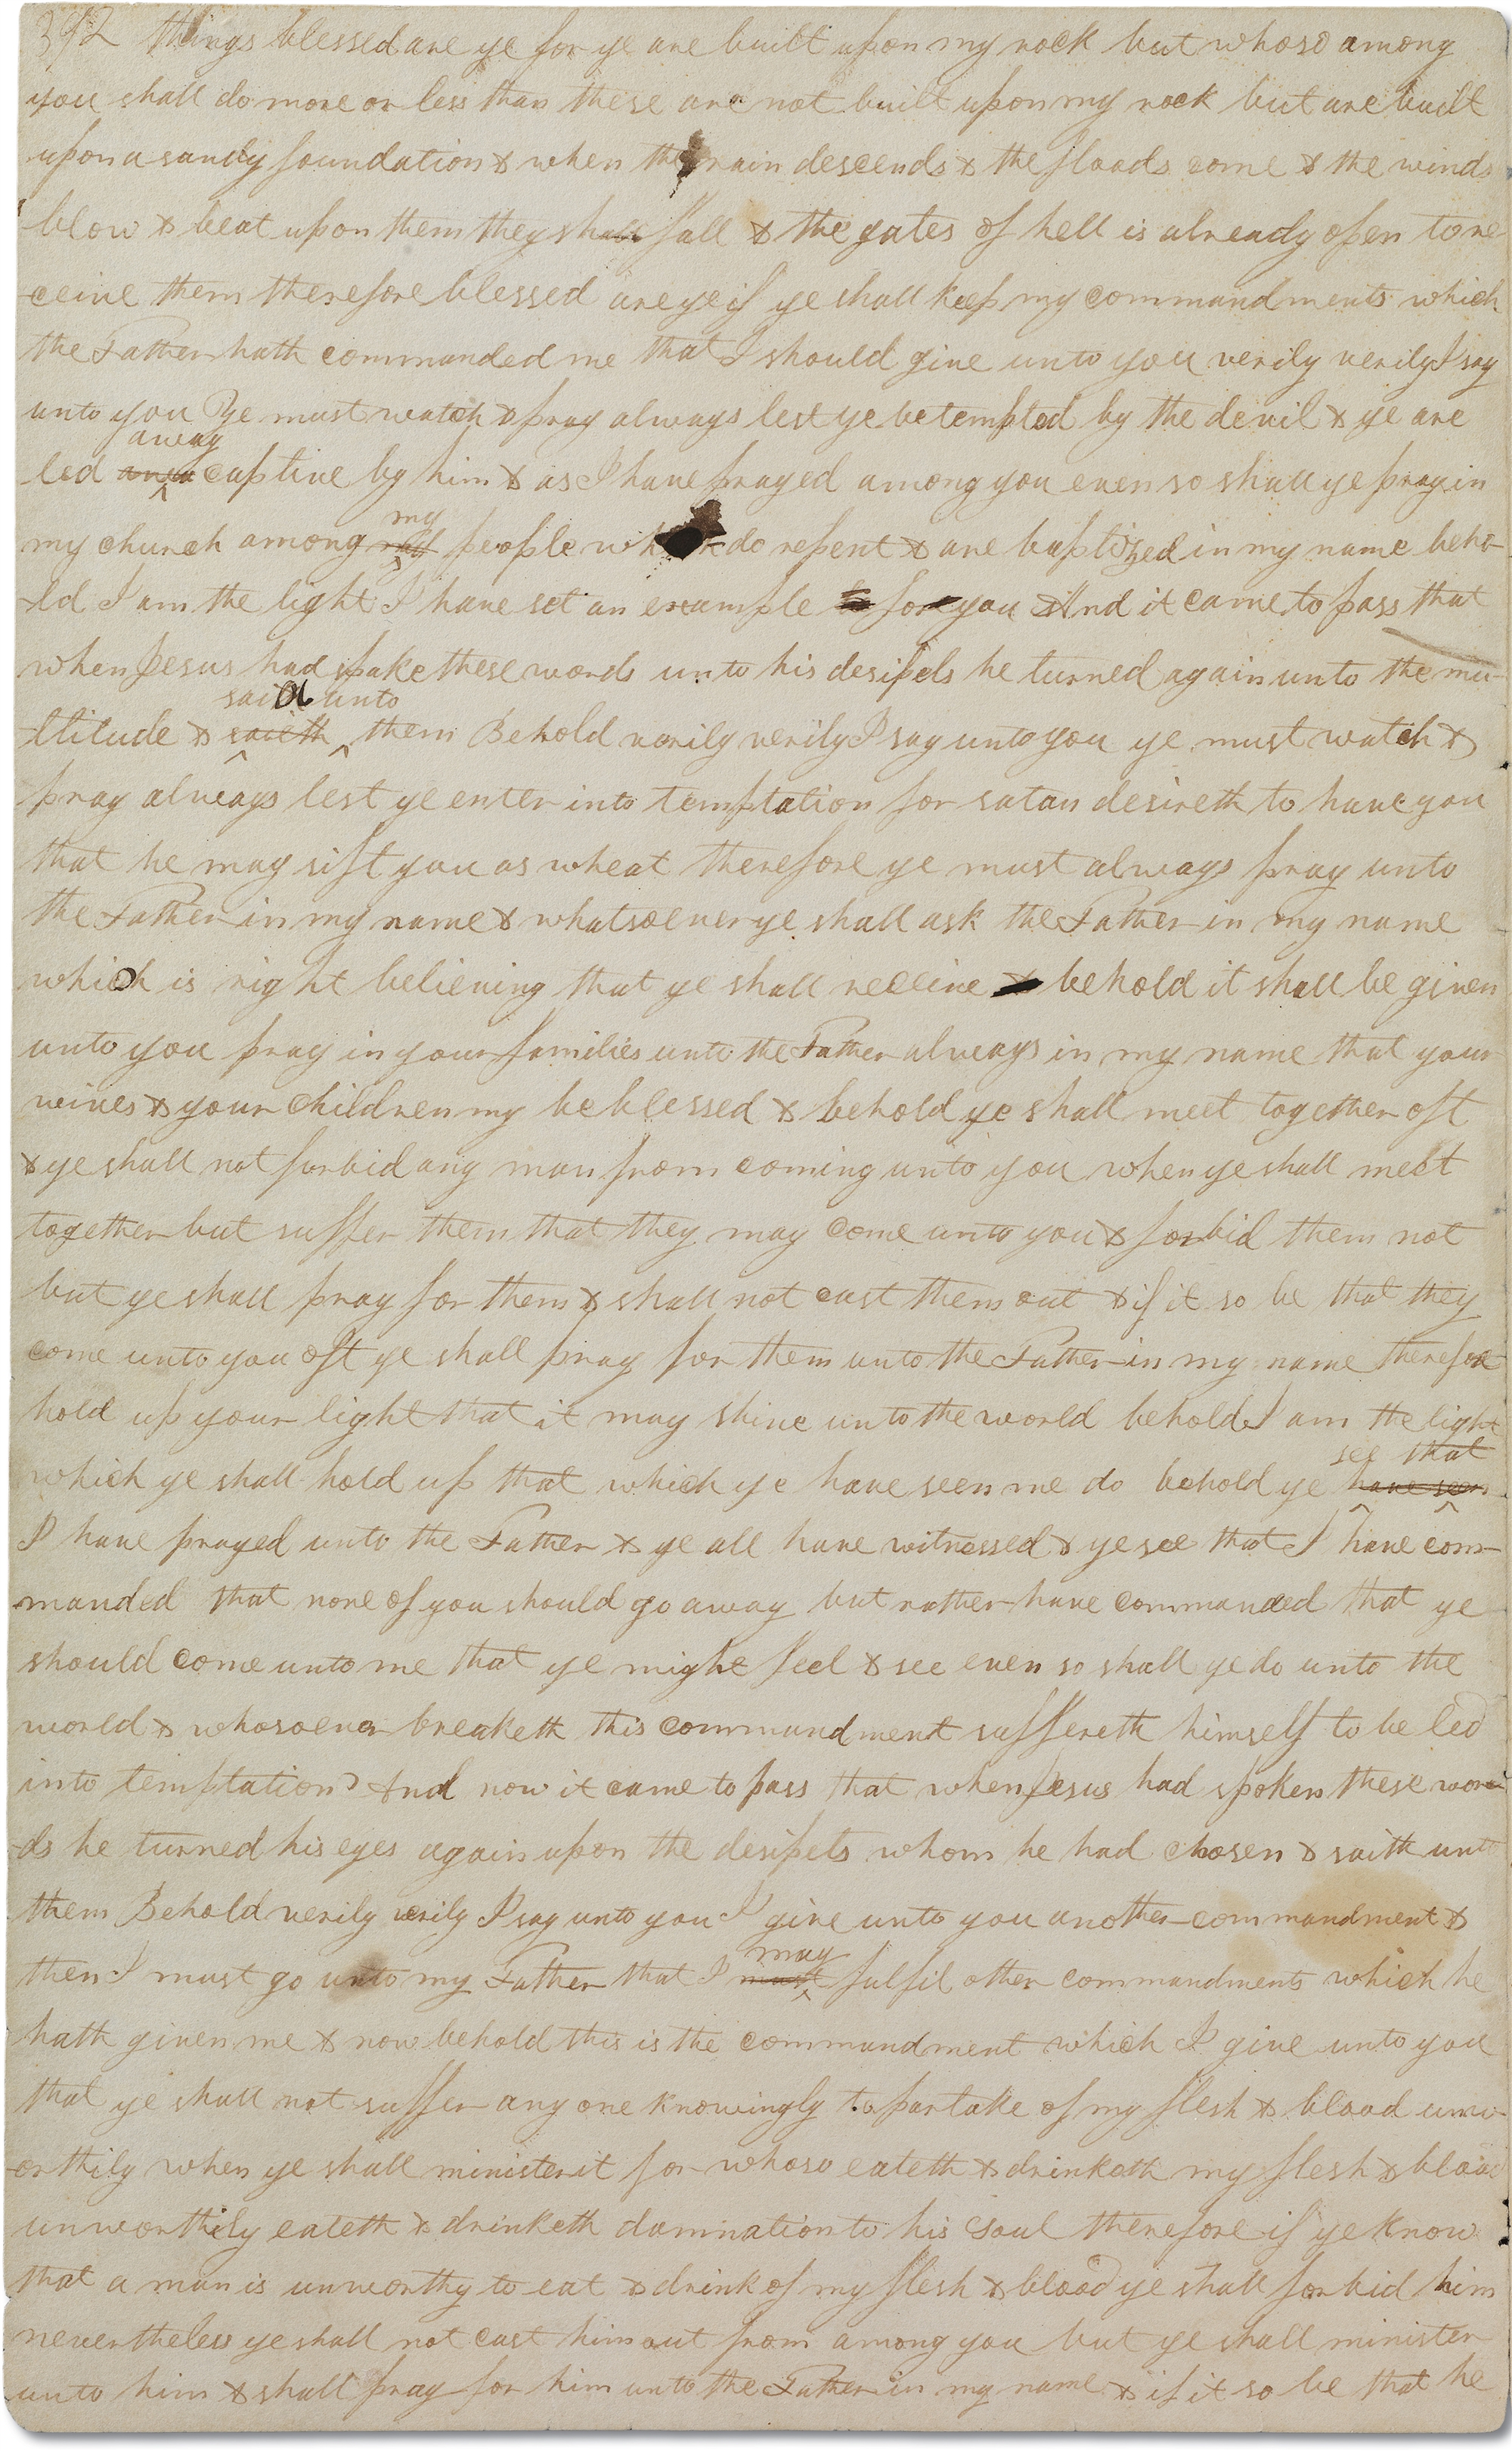 392 things blessed are ye for ye are built upon my rock but whoso among
you shall do more or less than these are not built upon my rock but are built
upon a sandy foundation & when the rain descends & the floods come & the winds
blow & beat upon them they shall fall & the gates of hell is already open to re-
-ceive them therefore blessed are ye if ye shall keep my commandments which
the Father hath commanded me that I should give unto you verily verily I say
unto you ye must watch & pray always lest ye be tempted by the devil & ye are
away
led captive by him & as I have prayed among you even so shall ye pray in
my
my church among people who do repent & are baptized in my name beho-
-ld I am the light I have set an example for you And it came to pass that
when Jesus had spake these words unto his desipels he turned again unto the mu-
said unto
-ltitude & saieth them Behold verily verily I say unto you ye must watch &
pray always lest ye enter into temptation for satan desireth to have you
that he may sift you as wheat therefore ye must always pray unto
the Father in my name & whatsoever ye shall ask the Father in my name
which is right believing that ye shall receive & behold it shall be given
unto you pray in your families unto the Father always in my name that your
wives & your children my be blessed & behold ye shall meet together oft
& ye shall not forbid any man from coming unto you when ye shall meet
together but suffer them that they may come unto you & forbid them not
but ye shall pray for them & shall not cast them out & if it so be that they
come unto you oft ye shall pray for them unto the Father in my name therefore
hold up your light that it may shine unto the world behold I am the light
see that
which ye shall hold up that which ye have seen me do behold ye have seen
I have prayed unto the Father & ye all have witnessed & ye see that I have com-
manded that none of you should go away but rather have commanded that ye
should come unto me that ye might feel & see even so shall ye do unto the
world & whosoever breaketh this commandment suffereth himself to be led
into temptation And now it came to pass that when Jesus had spoken these wor-
-ds he turned his eyes again upon the desipels whom he had chosen & saith unto
them Behold verily verily I say unto you I give unto you another commandment &
may
then I must go unto my Father that I must fulfil other commandments which he
hath given me & now behold this is the commandment which I give unto you
that ye shall not suffer any one knowingly to partake of my flesh & blood unw-
-orthily when ye shall minister it for whoso eateth & drinketh my flesh & blood
unworthily eateth & drinketh damnation to his soul therefore if ye know
that a man is unworthy to eat & drink of my flesh & blood ye shall forbid him
nevertheless ye shall not cast him out from among you but ye shall minister
unto him & shall pray for him unto the Father in my name & if it so be that he